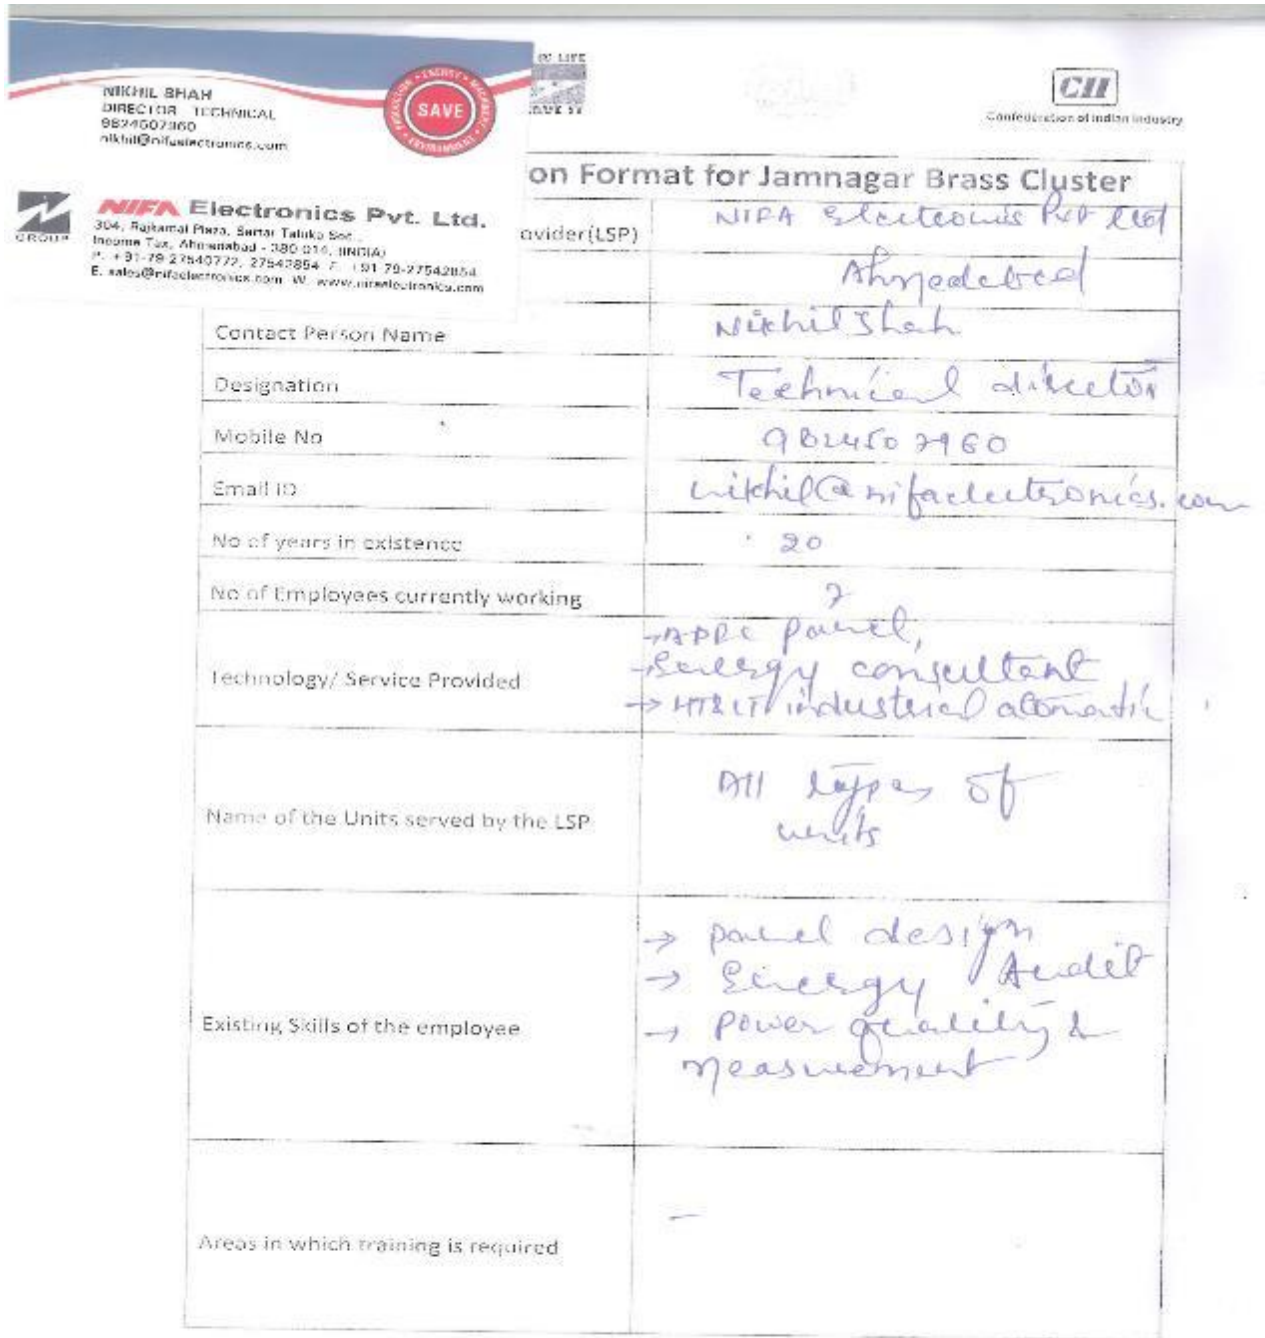 NIKHIL SHAH
DIRECTOR TECHNICAL
9824507960
nikhil@nifaelectronics.com
SAVE
GROUP
NIFA Electronics Pvt. Ltd.
304, Rajkamal Plaza, Sartar Taluka Soc.,
Income Tax, Ahmedabad - 380 014, (INDIA)
P. +91-79 27540772, 27542854 F. +91 79-27542854
E. sales@nifaelectronics.com W. www.nifaelectronics.com
CII
Confederation of Indian Industry
on Format for Jamnagar Brass Cluster
ovider(LSP)
NIFA Electronics Pvt Ltd
Ahmedabad
Contact Person Name
Nikhil Shah
Designation
Technical director
Mobile No
9824507960
Email ID
nikhil@nifaelectronics.com
No of years in existence
20
No of Employees currently working
7
Technology/ Service Provided
panel,
→ Energy consultant
→ HT&LT industrial
Name of the Units served by the LSP
All types of
units
Existing Skills of the employee
→ panel design
→ Energy Audit
→ power quality &
measurement
Areas in which training is required
-